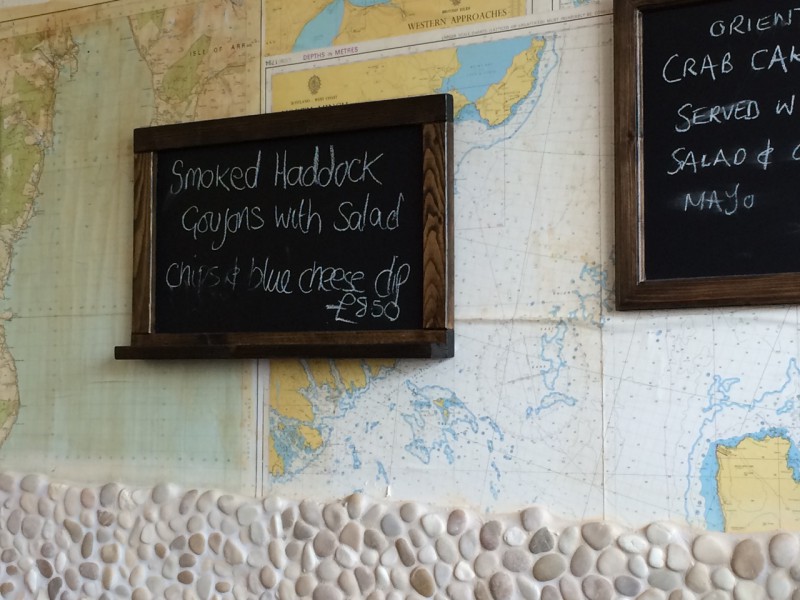 WESTERN APPROACHES
DEPTHS IN METRES
ISLE OF ARR
Smoked Haddock
Goujons with Salad
chips & blue cheese dip
£850
ORIENT
CRAB CAK
SERVED W
SALAD &
MAYO